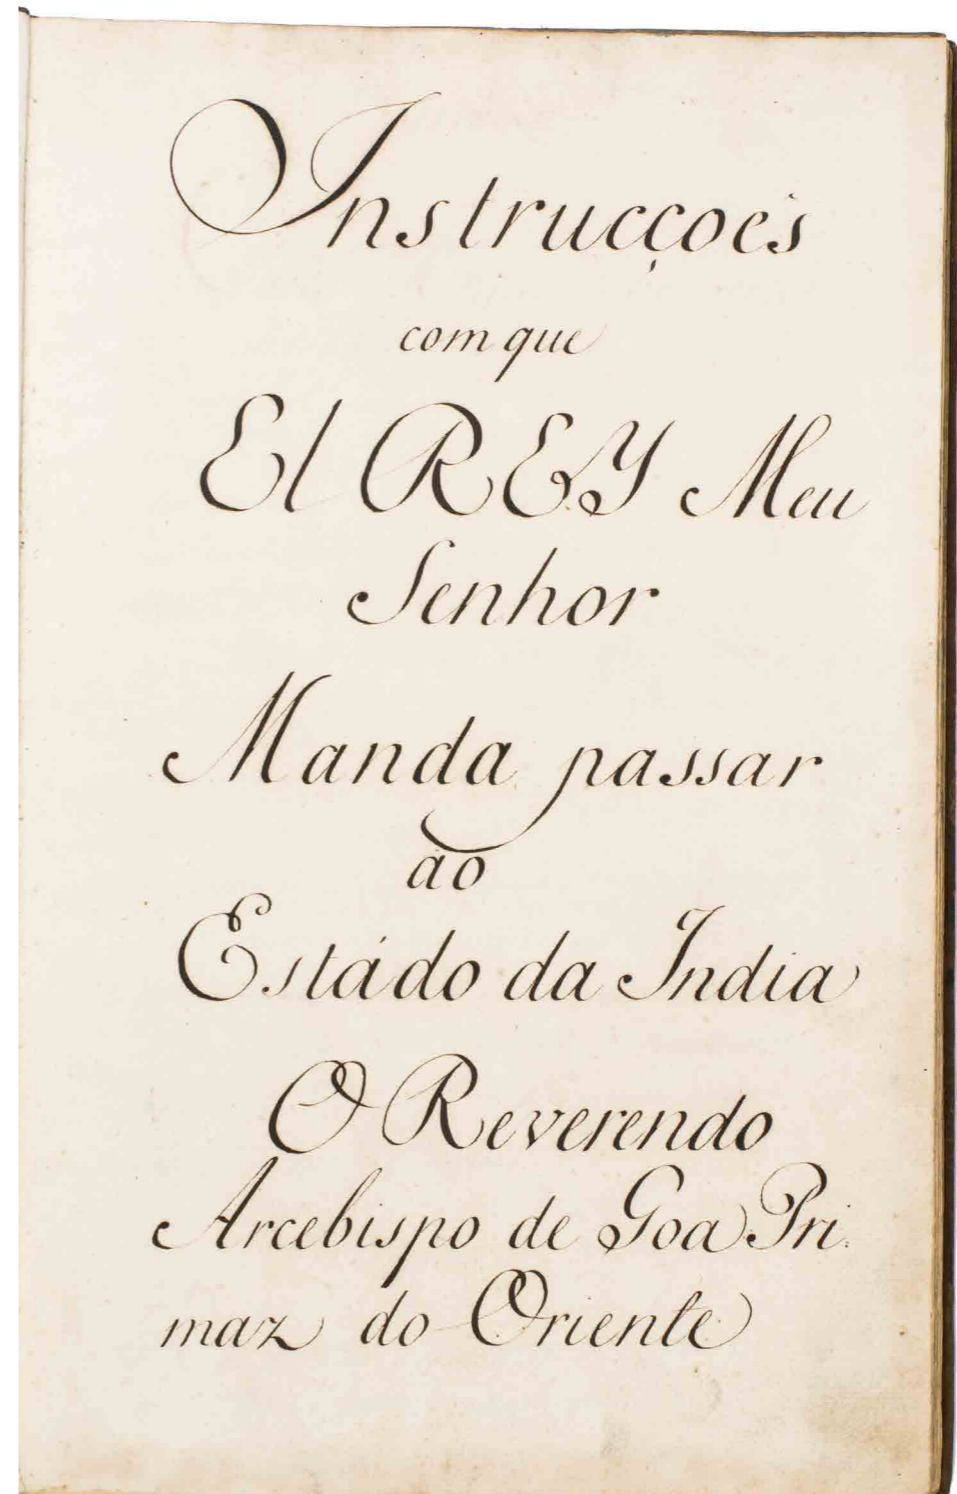 Instrucçoês
com que
El REY Meu
Senhor
Manda passar
ao
Estádo da India
O Reverendo
Arcebispo de Goa Pri:
maz do Oriente